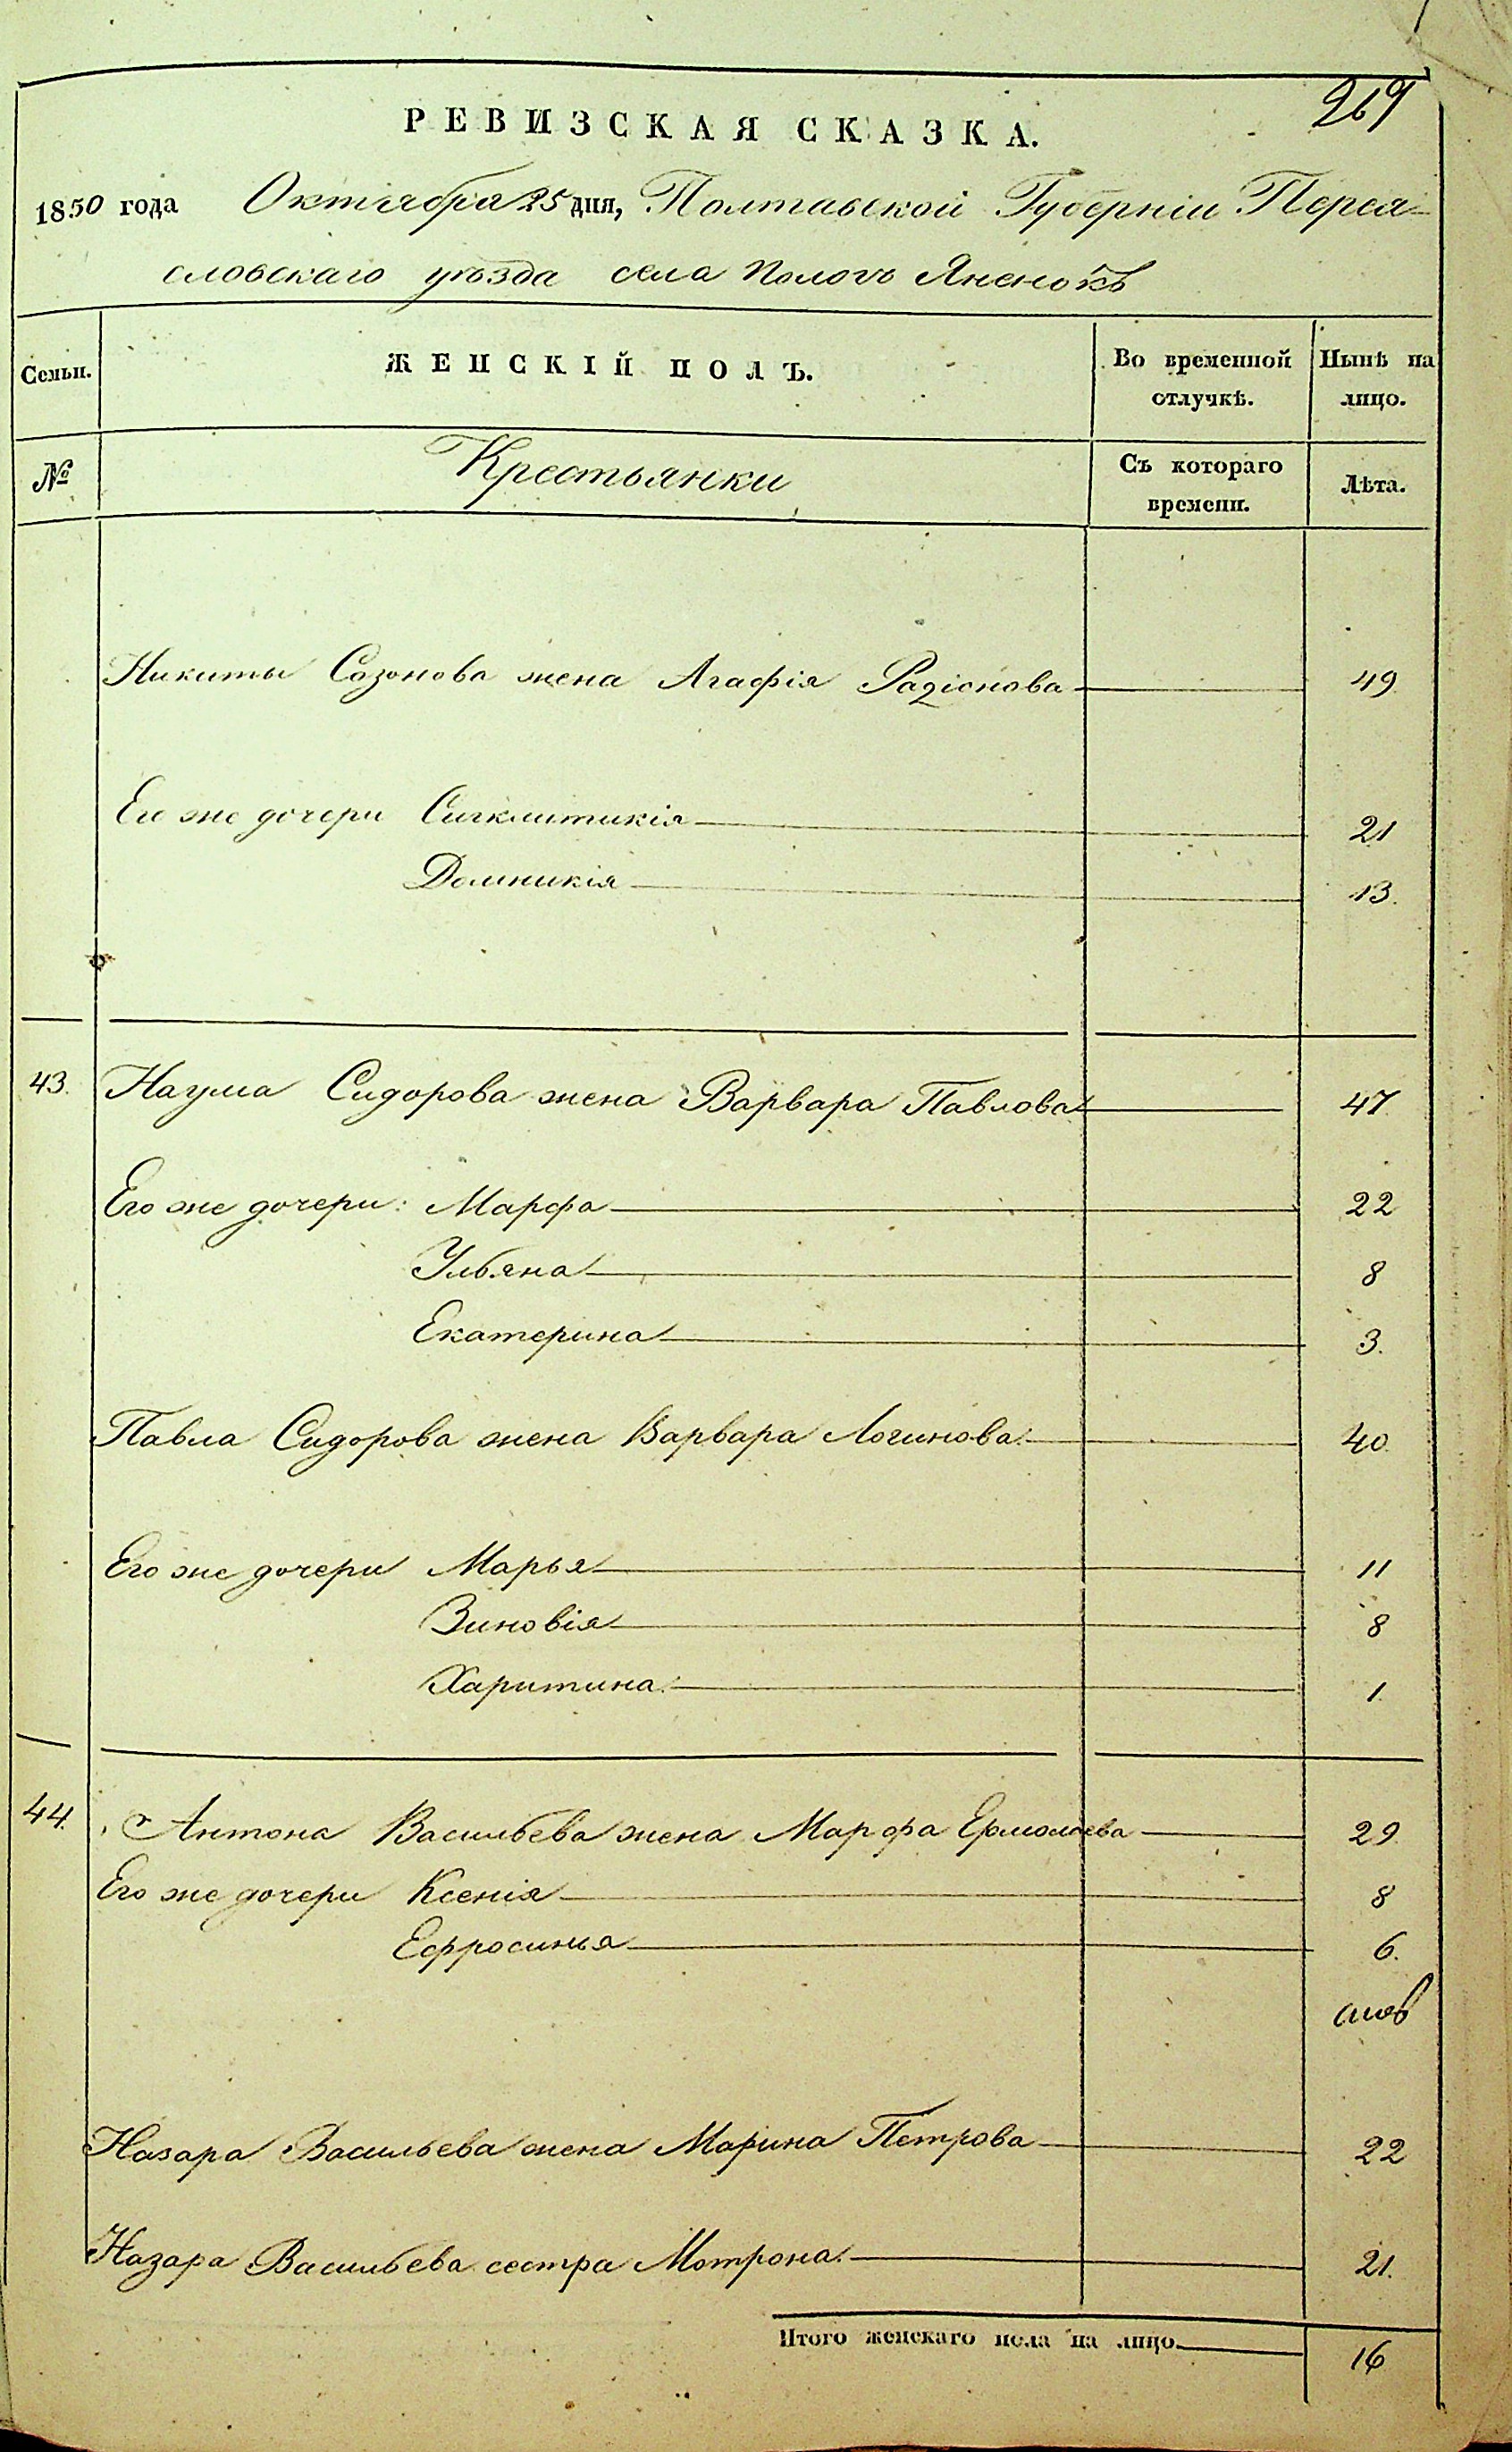 269
РЕВИЗСКАЯ СКАЗКА.
1850 года Октября 25 дня, Полтавской Губерніи Перея-
словскаго уѣзда села Пологъ Яненокъ
Семьи. ЖЕНСКІЙ ПОЛЪ. Во временной отлучкѣ. Нынѣ на лицо.
№ Крестьянки Съ котораго времени. Лѣта.
Никиты Созонова жена Агафія Радіонова 49
Его же дочери Сигклитикія 21
Домникія 13.
43. Наума Сидорова жена Варвара Павлова 47
Его же дочери: Марфа 22
Ульяна 8
Екатерина 3.
Павла Сидорова жена Варвара Логинова 40
Его же дочери Марья 11
Зиновія 8
Харитина 1.
44. Антона Васильева жена Марфа Ермолаева 29
Его же дочери Ксенія 8
Ефросинья 6.
Назара Васильева жена Марина Петрова 22
Назара Васильева сестра Мотрона 21.
Итого женскаго пола на лицо 16